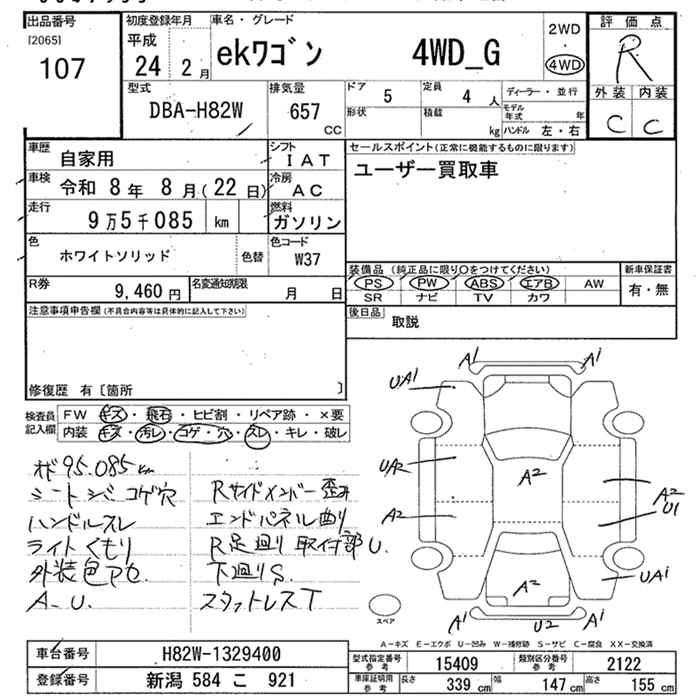 出品番号
[2065]
107
初度登録年月
平成
24 年 2 月
車名・グレード
ekワゴン 4WD_G
2WD
・
4WD
評価点
R
外装 内装
C C
型式
DBA-H82W
排気量
657
CC
ドア
5
定員
4 人
形状
積載
kg
ディーラー・並行
モデル年式 年
ハンドル 左・右
車歴
自家用
シフト
IAT
車検
令和 8 年 8 月 ( 22 日)
冷房
AC
走行
9万5千085 km
燃料
ガソリン
色
ホワイトソリッド
色替
色コード
W37
R券
9,460 円
名変通知期限
月 日
セールスポイント(正常に機能するものに限ります)
ユーザー買取車
装備品 (純正品に限り○をつけてください)
PS PW ABS エアB AW
SR ナビ TV カワ
新車保証書
有・無
後日品
取説
注意事項申告欄(不具合内容等は具体的に記入して下さい)
修復歴 有〔箇所 〕
検査員記入欄
FW キズ・飛石・ヒビ割・リペア跡・×要
内装 キズ・汚レ・コゲ・穴・スレ・キレ・破レ
オド95.085km
シートシミコゲ穴
ハンドルスレ
ライトくもり
外装色アセ
A-U.
Rサイドメンバー歪み
エンドパネル曲り
R足廻り取付部U.
下廻りS.
スタットレスT
A1 A1
UA1
A2
UA2
A2
A2
U1
A2
A2
UA1
A1 U2 A1
スペア
A-キズ E-エクボ U-凹み W-補修跡 S-サビ C-腐食 XX-交換済
車台番号
H82W-1329400
登録番号
新潟 584 こ 921
型式指定番号
参考
15409
類別区分番号
参考
2122
車庫証明用
参考
長さ 339 cm
幅 147 cm
高さ 155 cm